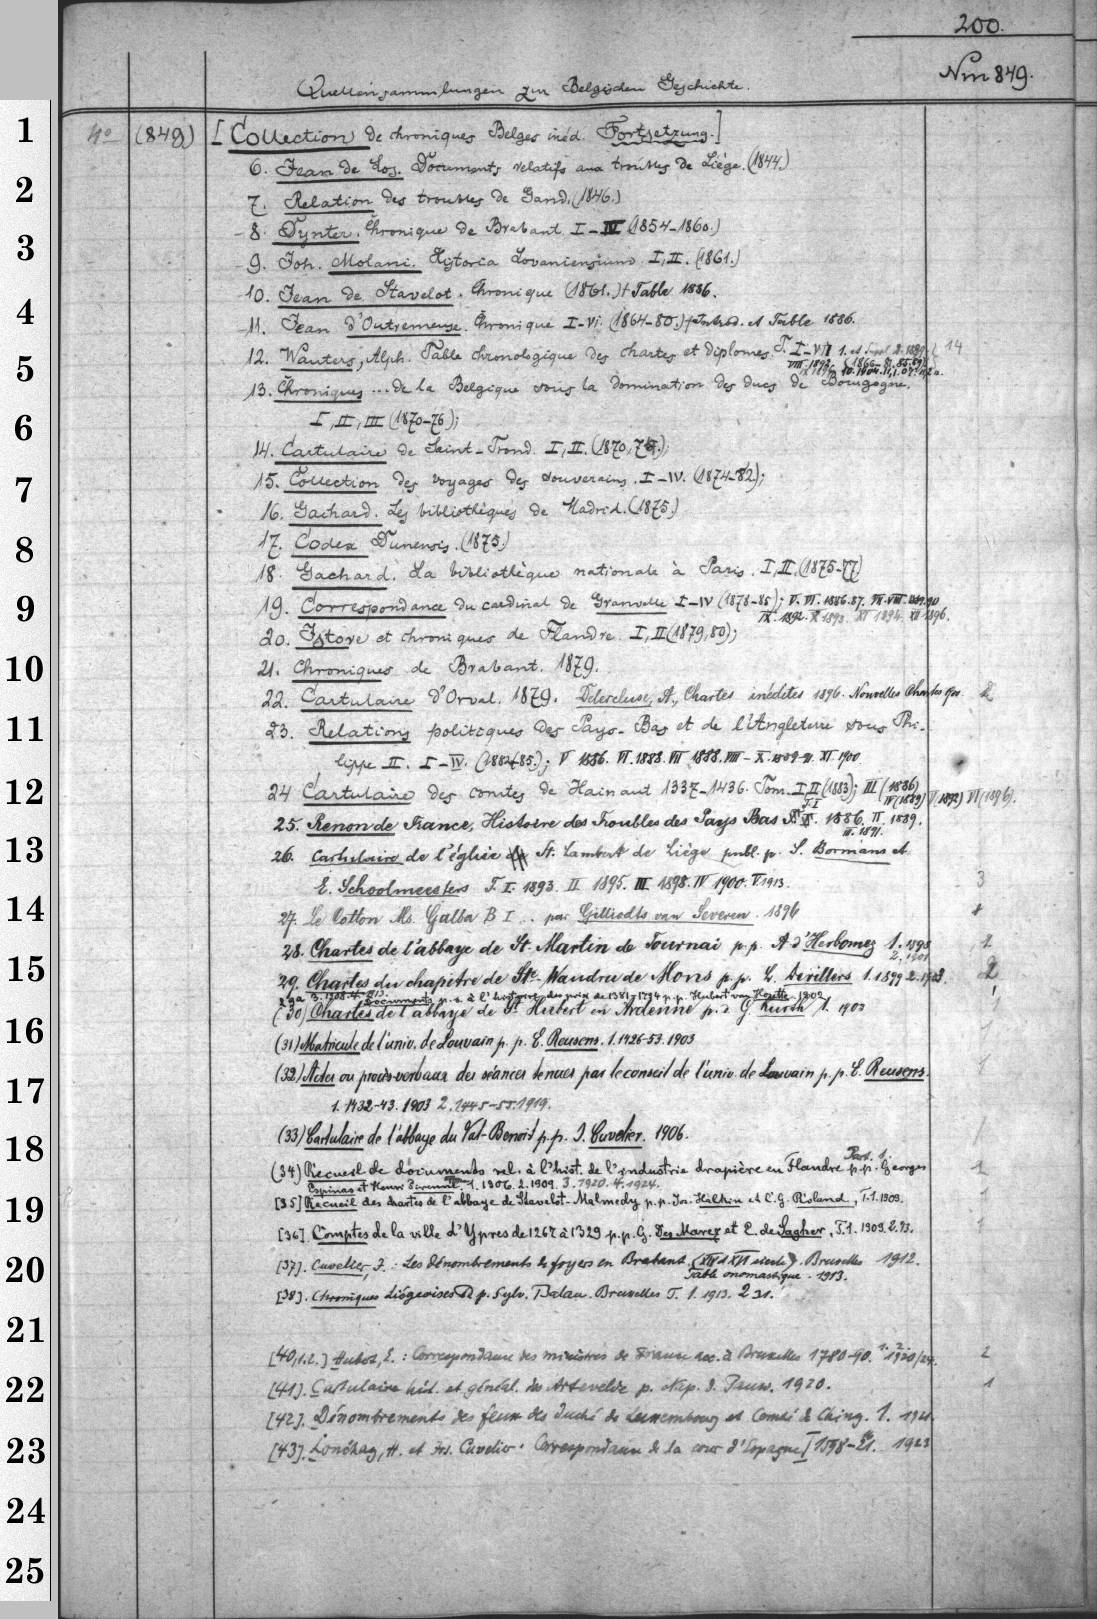 200.
Nrn 849.
Quellensammlungen zur Belgischen Geschichte.
1 4o (849) [Collection de chroniques Belges inéd. Fortsetzung.]
6. Jean de Los. Documents relatifs aux troubles de Liége. (1844.)
2
7. Relation des troubles de Gand. (1846.)
3 8. Dynter. Chronique de Brabant. I-IV (1854-1860.)
9. Joh. Molani. Historia Lovaniensium I, II. (1861.)
4 10. Jean de Stavelot. Chronique (1861.) + Table 1886.
11. Jean d'Outremeuse. Chronique I-VI. (1864-80.) + Introd. et Table 1886.
12. Wauters, Alph. Table chronologique des chartes et diplomes. T. I-VII 14
5
13. Chroniques ... de la Belgique sous la domination des ducs de Bourgogne.
6 I, II, III (1870-76);
14. Cartulaire de Saint-Trond. I, II. (1870, 75.);
7 15. Collection des voyages des souverains. I-IV. (1874-82);
16. Gachard. Les bibliothèques de Madrid. (1875.)
8 17. Codex Dunensis. (1875.)
18. Gachard. La bibliothèque nationale à Paris. I, II. (1875-77)
9 19. Correspondance du cardinal de Granvelle I-IV (1878-85); V. VI. 1886. 87. VII. VIII. 1890
IX. 1892. X 1893. XI 1894. XII 1896.
20. Istore et chroniques de Flandre. I, II (1879, 80);
10 21. Chroniques de Brabant. 1879.
22. Cartulaire d'Orval. 1879. Delescluse, A., Chartes inédites 1896. Nouvelles Chartes 2
11 23. Relations politiques des Pays-Bas et de l'Angleterre sous Phi-
lippe II. I-IV. (1882-85.); V 1886. VI. 1888. VII 1888. VIII-X. 1889-91. XI. 1900.
12 24 Cartulaire des comtes de Hainaut 1337-1436. Tom. I, II (1883); III (1886)
IV (1889) V (1892) VI (1896).
25. Renon de France, Histoire des Troubles des Pays Bas T. I. 1886. II. 1889.
III. 1891.
13 26. Cartulaire de l'église St. Lambert de Liége publ. p. S. Bormans et
E. Schoolmeesters T. I. 1893. II 1895. III 1898. IV 1900. V. 1913. 3
14 27. Le Cotton Ms. Galba B I .. par Gilliodts van Severen. 1896 1
28. Chartes de l'abbaye de St. Martin de Tournai p. p. A d'Herbomez 1. 1898 2
2. 1901
15 29. Chartes du chapitre de Ste-Waudru de Mons p. p. L. Devillers 1. 1899 2. 1903. 2
29a Documents p. s. à l'histoire des prix de 1381-1794 p. p. Hubert van Houtte 1902 1
(30) Chartes de l'abbaye de St Hubert en Ardenne p. p. G. Kurth 1. 1903
16 (31) Matricule de l'univ. de Louvain p. p. E. Reusens. 1. 1426-53. 1903 1
(32) Actes ou procès-verbaux des séances tenues par le conseil de l'univ. de Louvain p. p. E. Reusens. 1
17 1. 1432-43. 1903 2. 1445-55. 1919.
18 (33) Cartulaire de l'abbaye du Val-Benoit p. p. J. Cuvelier. 1906. 1
(34) Recueil de documents rel. à l'hist. de l'industrie drapière en Flandre Part. 1. p. p. Georges 1
Espinas et Henri Pirenne. 1. 1906. 2. 1909. 3. 1920. 4. 1924.
19 [35] Recueil des chartes de l'abbaye de Stavelot-Malmedy p. p. Jos. Halkin et C. G. Roland, T. 1. 1909. 1
[36]. Comptes de la ville d'Ypres de 1267 à 1329 p. p. G. Des Marez et E. de Sagher, T. 1. 1909. 2. 13. 1
20 [37]. Cuvelier, J. : Les dénombrements de foyers en Brabant (XIVe-XVIe siècle). Bruxelles 1912.
Table onomastique. 1913.
[38]. Chroniques Liégeoises Ed p. Sylv. Balau. Bruxelles T. 1. 1913. 2 31.
21
[40, 1.2.] Hubert, E. : Correspondance des ministres de France acc. à Bruxelles 1780-90. 1. 2. 1920/24. 2
22 [41]. Cartulaire hist. et généal. des Artevelde p. Nap. d. Pauw. 1920. 1
[42]. Dénombrements des feux des duché de Luxembourg et Comté de Chiny. 1. 1921.
23 [43]. Lonchay, H. et Jos. Cuvelier : Correspondance de la cour d'Espagne I 1598-21. 1923
24
25